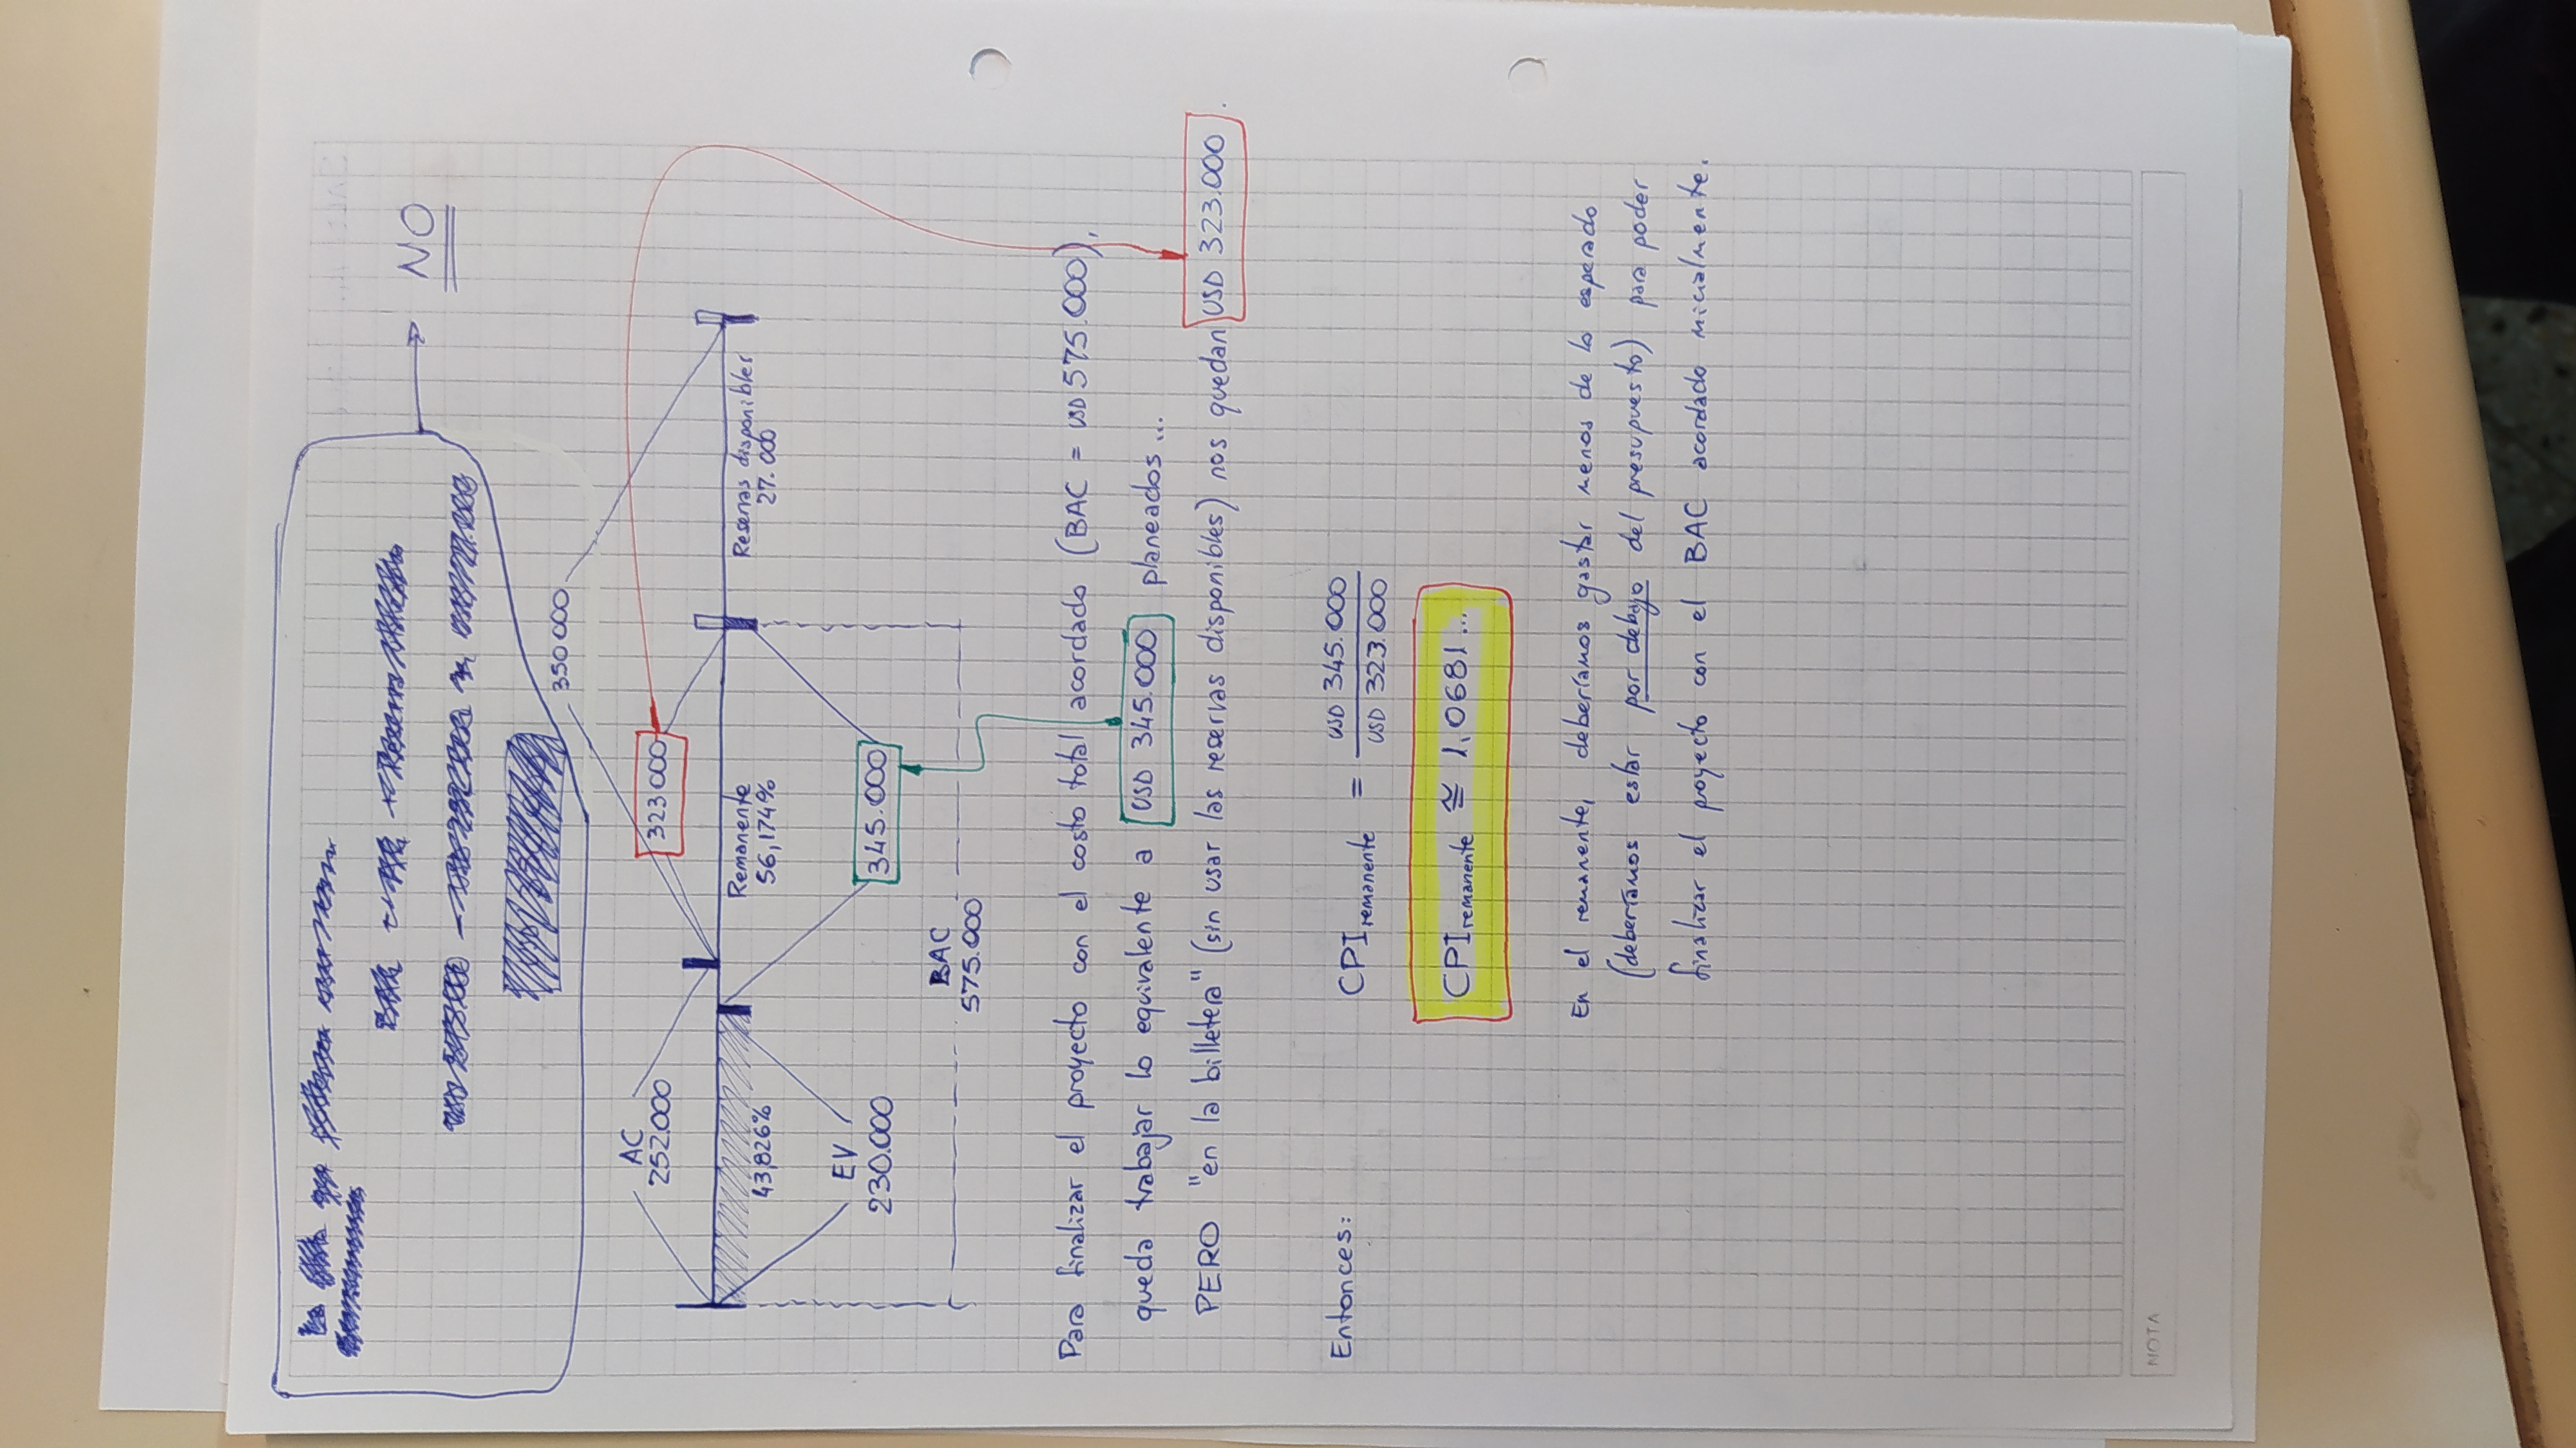 NO
350 000
AC
252.000
323 000
Remanente
56,174%
Reservas disponibles
27.000
43,826%
EV
230.000
345.000
BAC
575.000
Para finalizar el proyecto con el costo total acordado (BAC = USD 575.000),
queda trabajar lo equivalente a USD 345.000 planeados...
PERO "en la billetera" (sin usar las reservas disponibles) nos quedan USD 323.000.
Entonces:
CPI remanente = USD 345.000 / USD 323.000
CPI remanente ≅ 1,0681...
En el remanente, deberíamos gastar menos de lo esperado
(deberíamos estar por debajo del presupuesto) para poder
finalizar el proyecto con el BAC acordado inicialmente.
NOTA